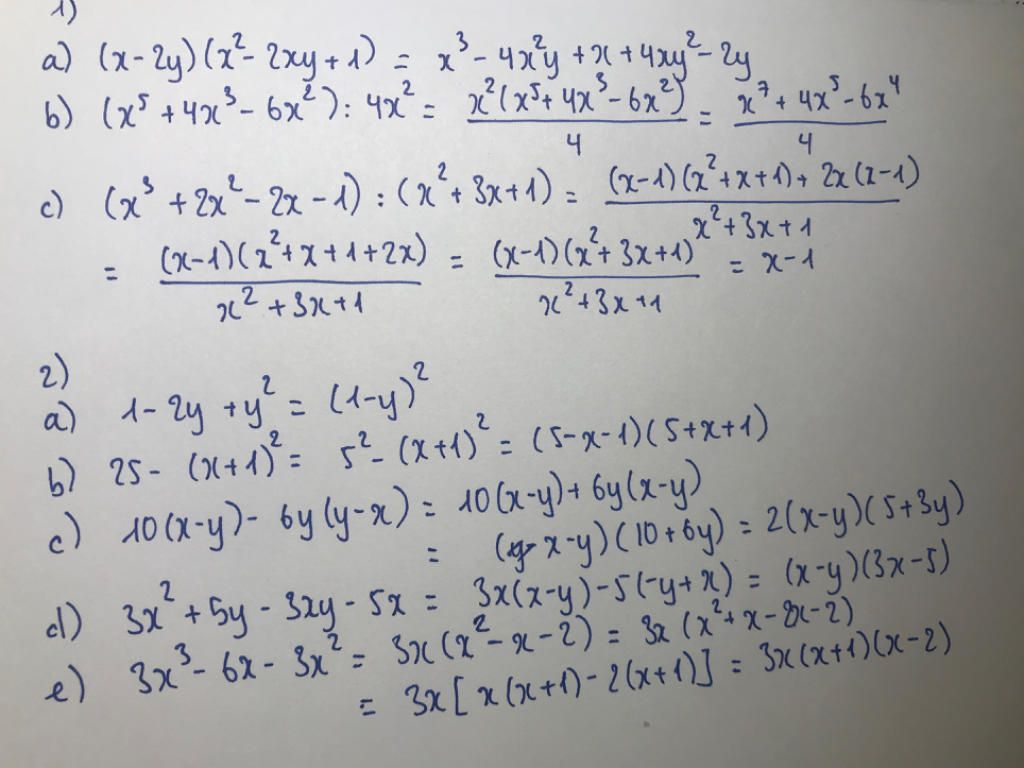 1)
a) (x-2y)(x²-2xy+1) = x³-4x²y+x+4xy²-2y
b) (x⁵+4x³-6x²):4x² = x²(x⁵+4x³-6x²)/4 = x⁷+4x⁵-6x⁴/4
c) (x³+2x²-2x-1):(x²+3x+1) = (x-1)(x²+x+1)+2x(x-1)/x²+3x+1
= (x-1)(x²+x+1+2x)/x²+3x+1 = (x-1)(x²+3x+1)/x²+3x+1 = x-1
2)
a) 1-2y+y² = (1-y)²
b) 25-(x+1)² = 5²-(x+1)² = (5-x-1)(5+x+1)
c) 10(x-y)-6y(y-x) = 10(x-y)+6y(x-y)
= (x-y)(10+6y) = 2(x-y)(5+3y)
d) 3x²+5y-3xy-5x = 3x(x-y)-5(-y+x) = (x-y)(3x-5)
e) 3x³-6x-3x² = 3x(x²-x-2) = 3x(x²+x-2x-2)
= 3x[x(x+1)-2(x+1)] = 3x(x+1)(x-2)